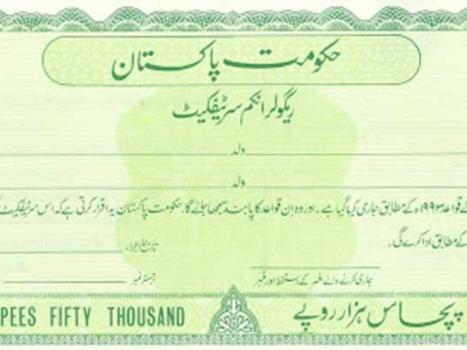 حکومت پاکستان
ریگولر انکم سرٹیفکیٹ
ولد
ولد
قواعد ۱۹۹۳ء کے مطابق جاری کیا گیا ہے۔ اور وہ ان قواعد کا پابند سمجھا جائے گا۔ حکومت پاکستان یہ اقرار کرتی ہے کہ اس سرٹیفکیٹ
کے مطابق ادا کرے گی۔
تاریخ اجراء
جاری کرنے والے افسر کے دستخط اور مہر
رجسٹر نمبر
PEES FIFTY THOUSAND
پچاس ہزار روپے